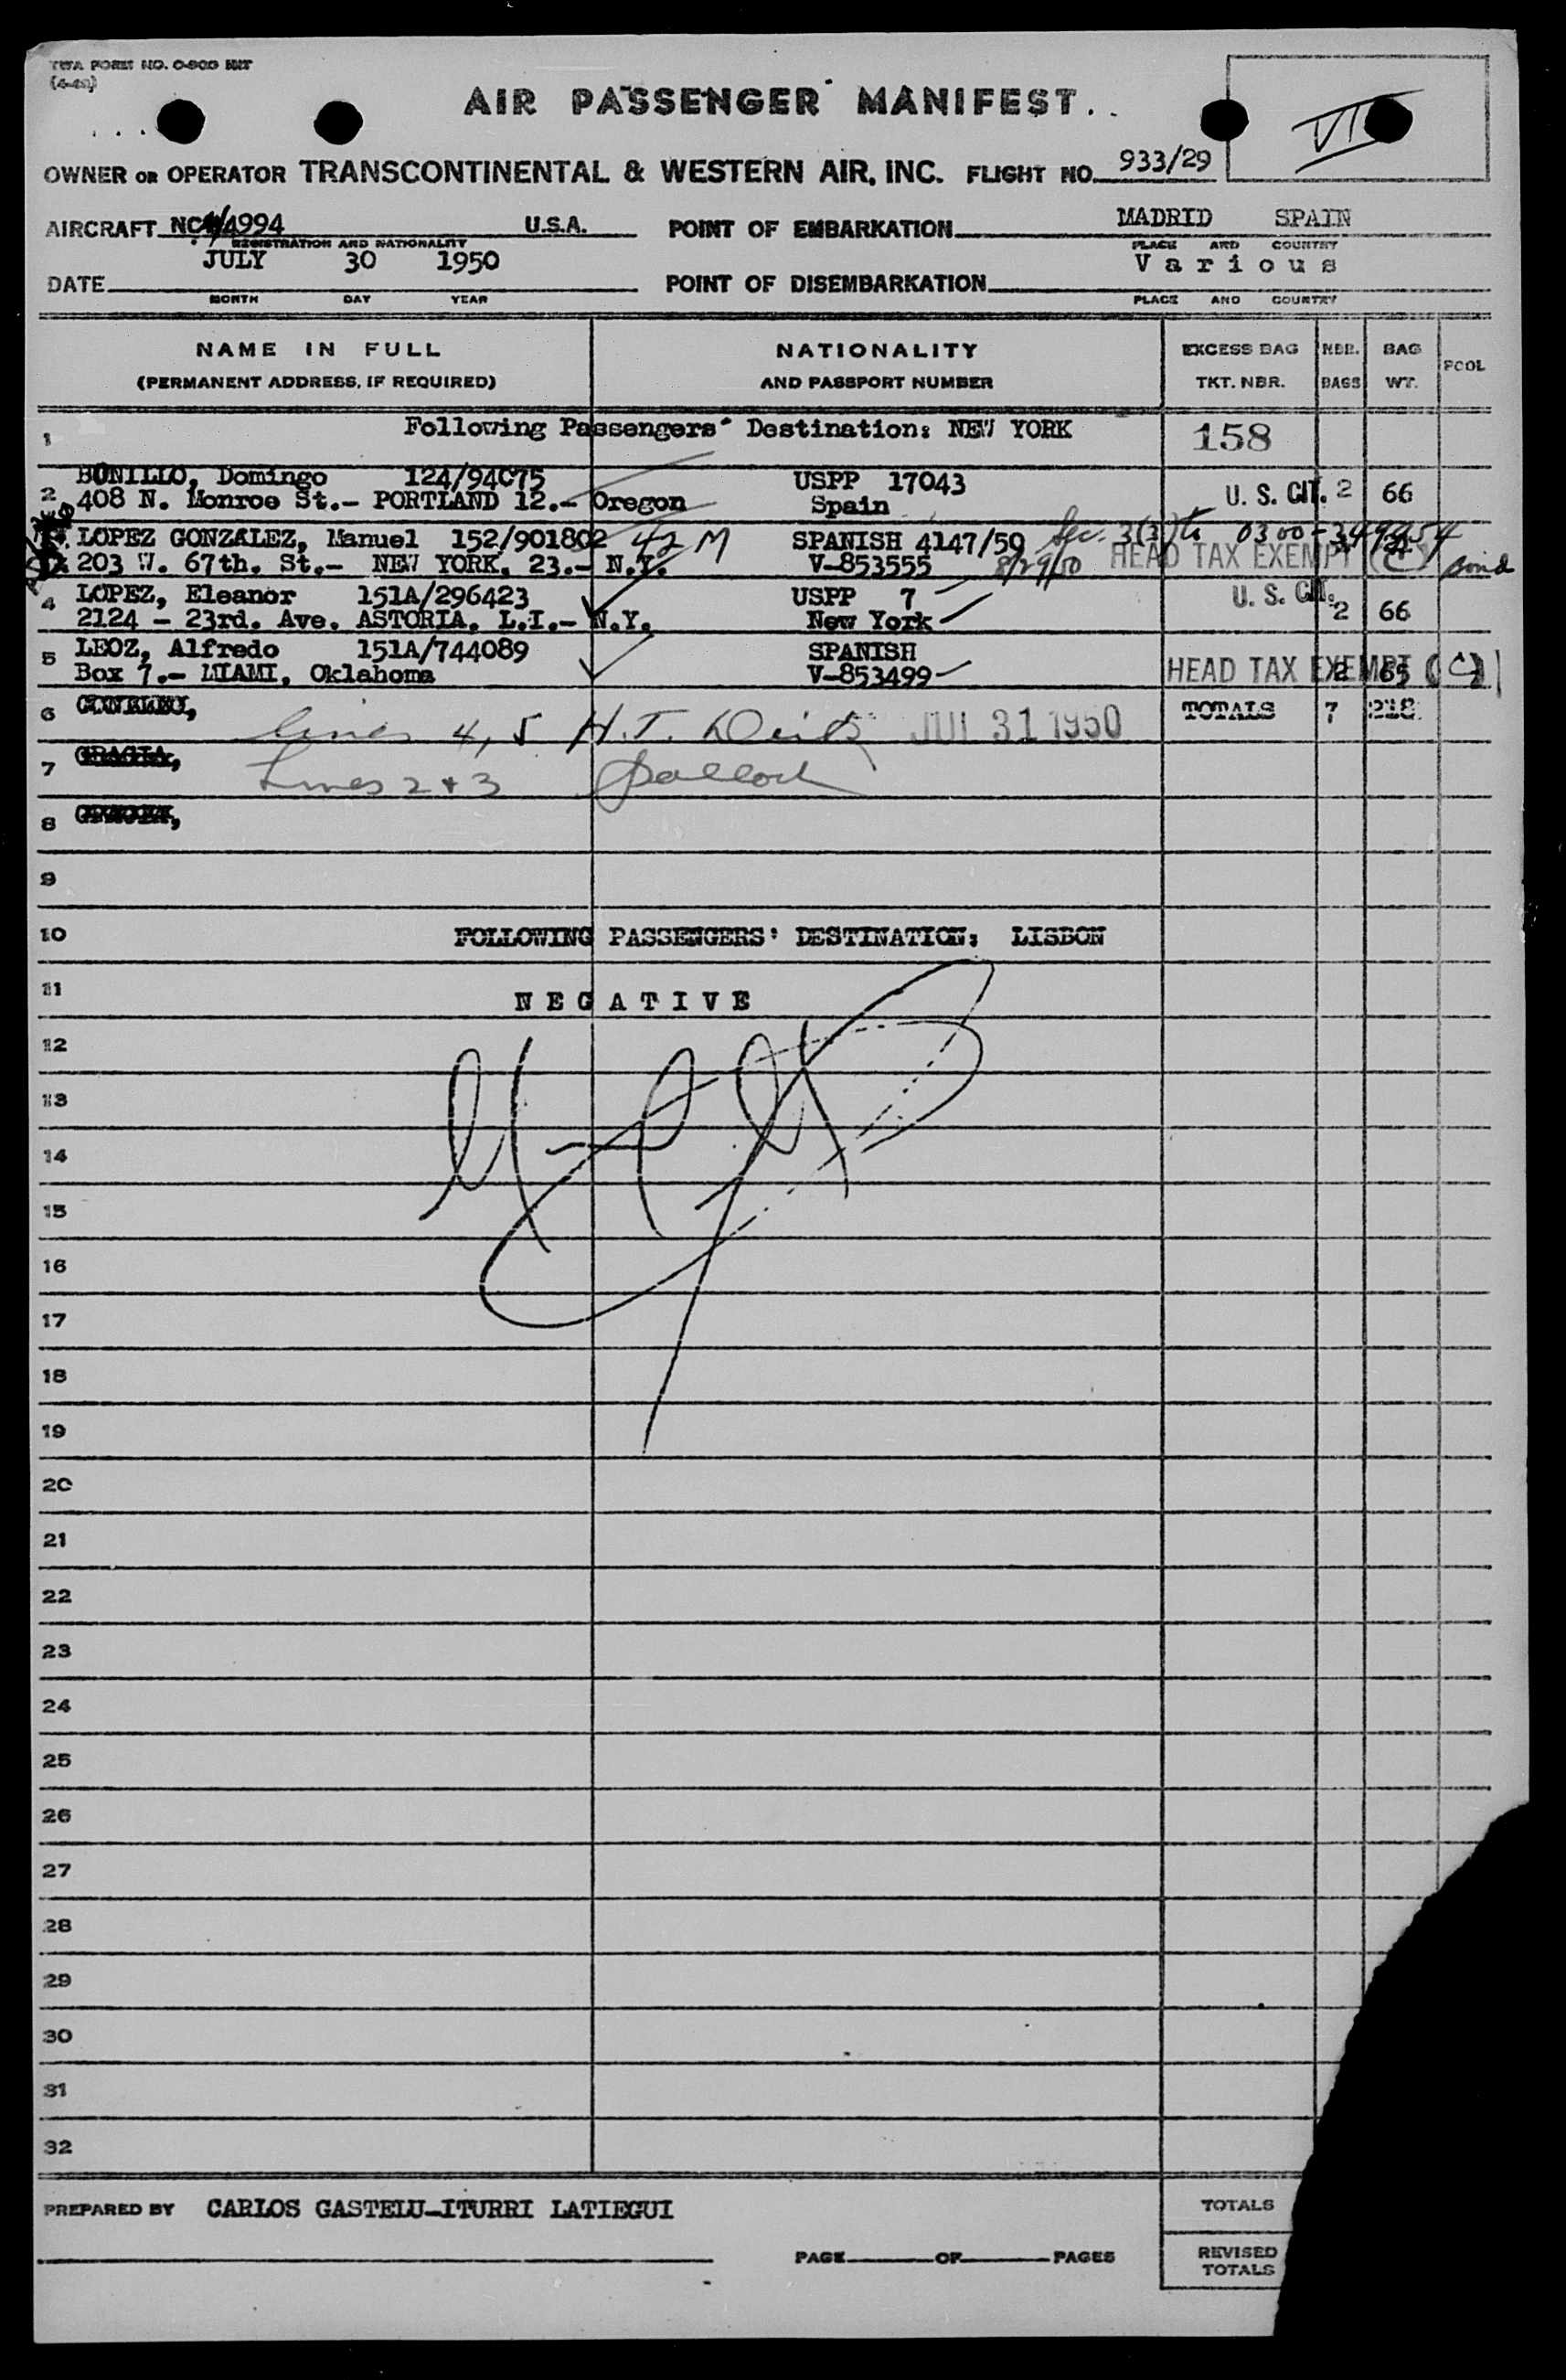 TWA FORM NO. O-90D INT
AIR PASSENGER MANIFEST.
VI
OWNER OR OPERATOR TRANSCONTINENTAL & WESTERN AIR, INC. FLIGHT NO. 933/29
AIRCRAFT 4994 U.S.A. POINT OF EMBARKATION MADRID SPAIN
REGISTRATION AND NATIONALITY PLACE AND COUNTRY
DATE JULY 30 1950 POINT OF DISEMBARKATION Various
MONTH DAY YEAR PLACE AND COUNTRY
NAME IN FULL NATIONALITY EXCESS BAG NBR. BAG POOL
(PERMANENT ADDRESS, IF REQUIRED) AND PASSPORT NUMBER TKT. NBR. BAGS WT.
1 Following Passengers' Destination: NEW YORK 158
2 BONILLO, Domingo 124/94075 USPP 17043
408 N. Monroe St.- PORTLAND 12.- Oregon Spain U. S. CIT. 2 66
LOPEZ GONZALEZ, Manuel 152/901802 42 M SPANISH 4147/50 Sec. 3(3) 0300-
203 W. 67th. St.- NEW YORK, 23.- N.Y. V-853555 8/29/50 HEAD TAX EXEMPT (C) Bond
4 LOPEZ, Eleanor 151A/296423 USPP 7 U. S. CIT.
2124 - 23rd. Ave. ASTORIA, L.I.- N.Y. New York 2 66
5 LEOZ, Alfredo 151A/744089 SPANISH
Box 7.- MIAMI, Oklahoma V-853499 HEAD TAX EXEMPT (C) 2 65
6 Lines 4, 5 H.T. JUL 31 1950 TOTALS 7 218
7 Lines 2 + 3
8
9
10 FOLLOWING PASSENGERS' DESTINATION: LISBON
11 NEGATIVE
12
13
14
15
16
17
18
19
20
21
22
23
24
25
26
27
28
29
30
31
32
PREPARED BY CARLOS GASTELU-ITURRI LATIEGUI TOTALS
PAGE OF PAGES REVISED
TOTALS